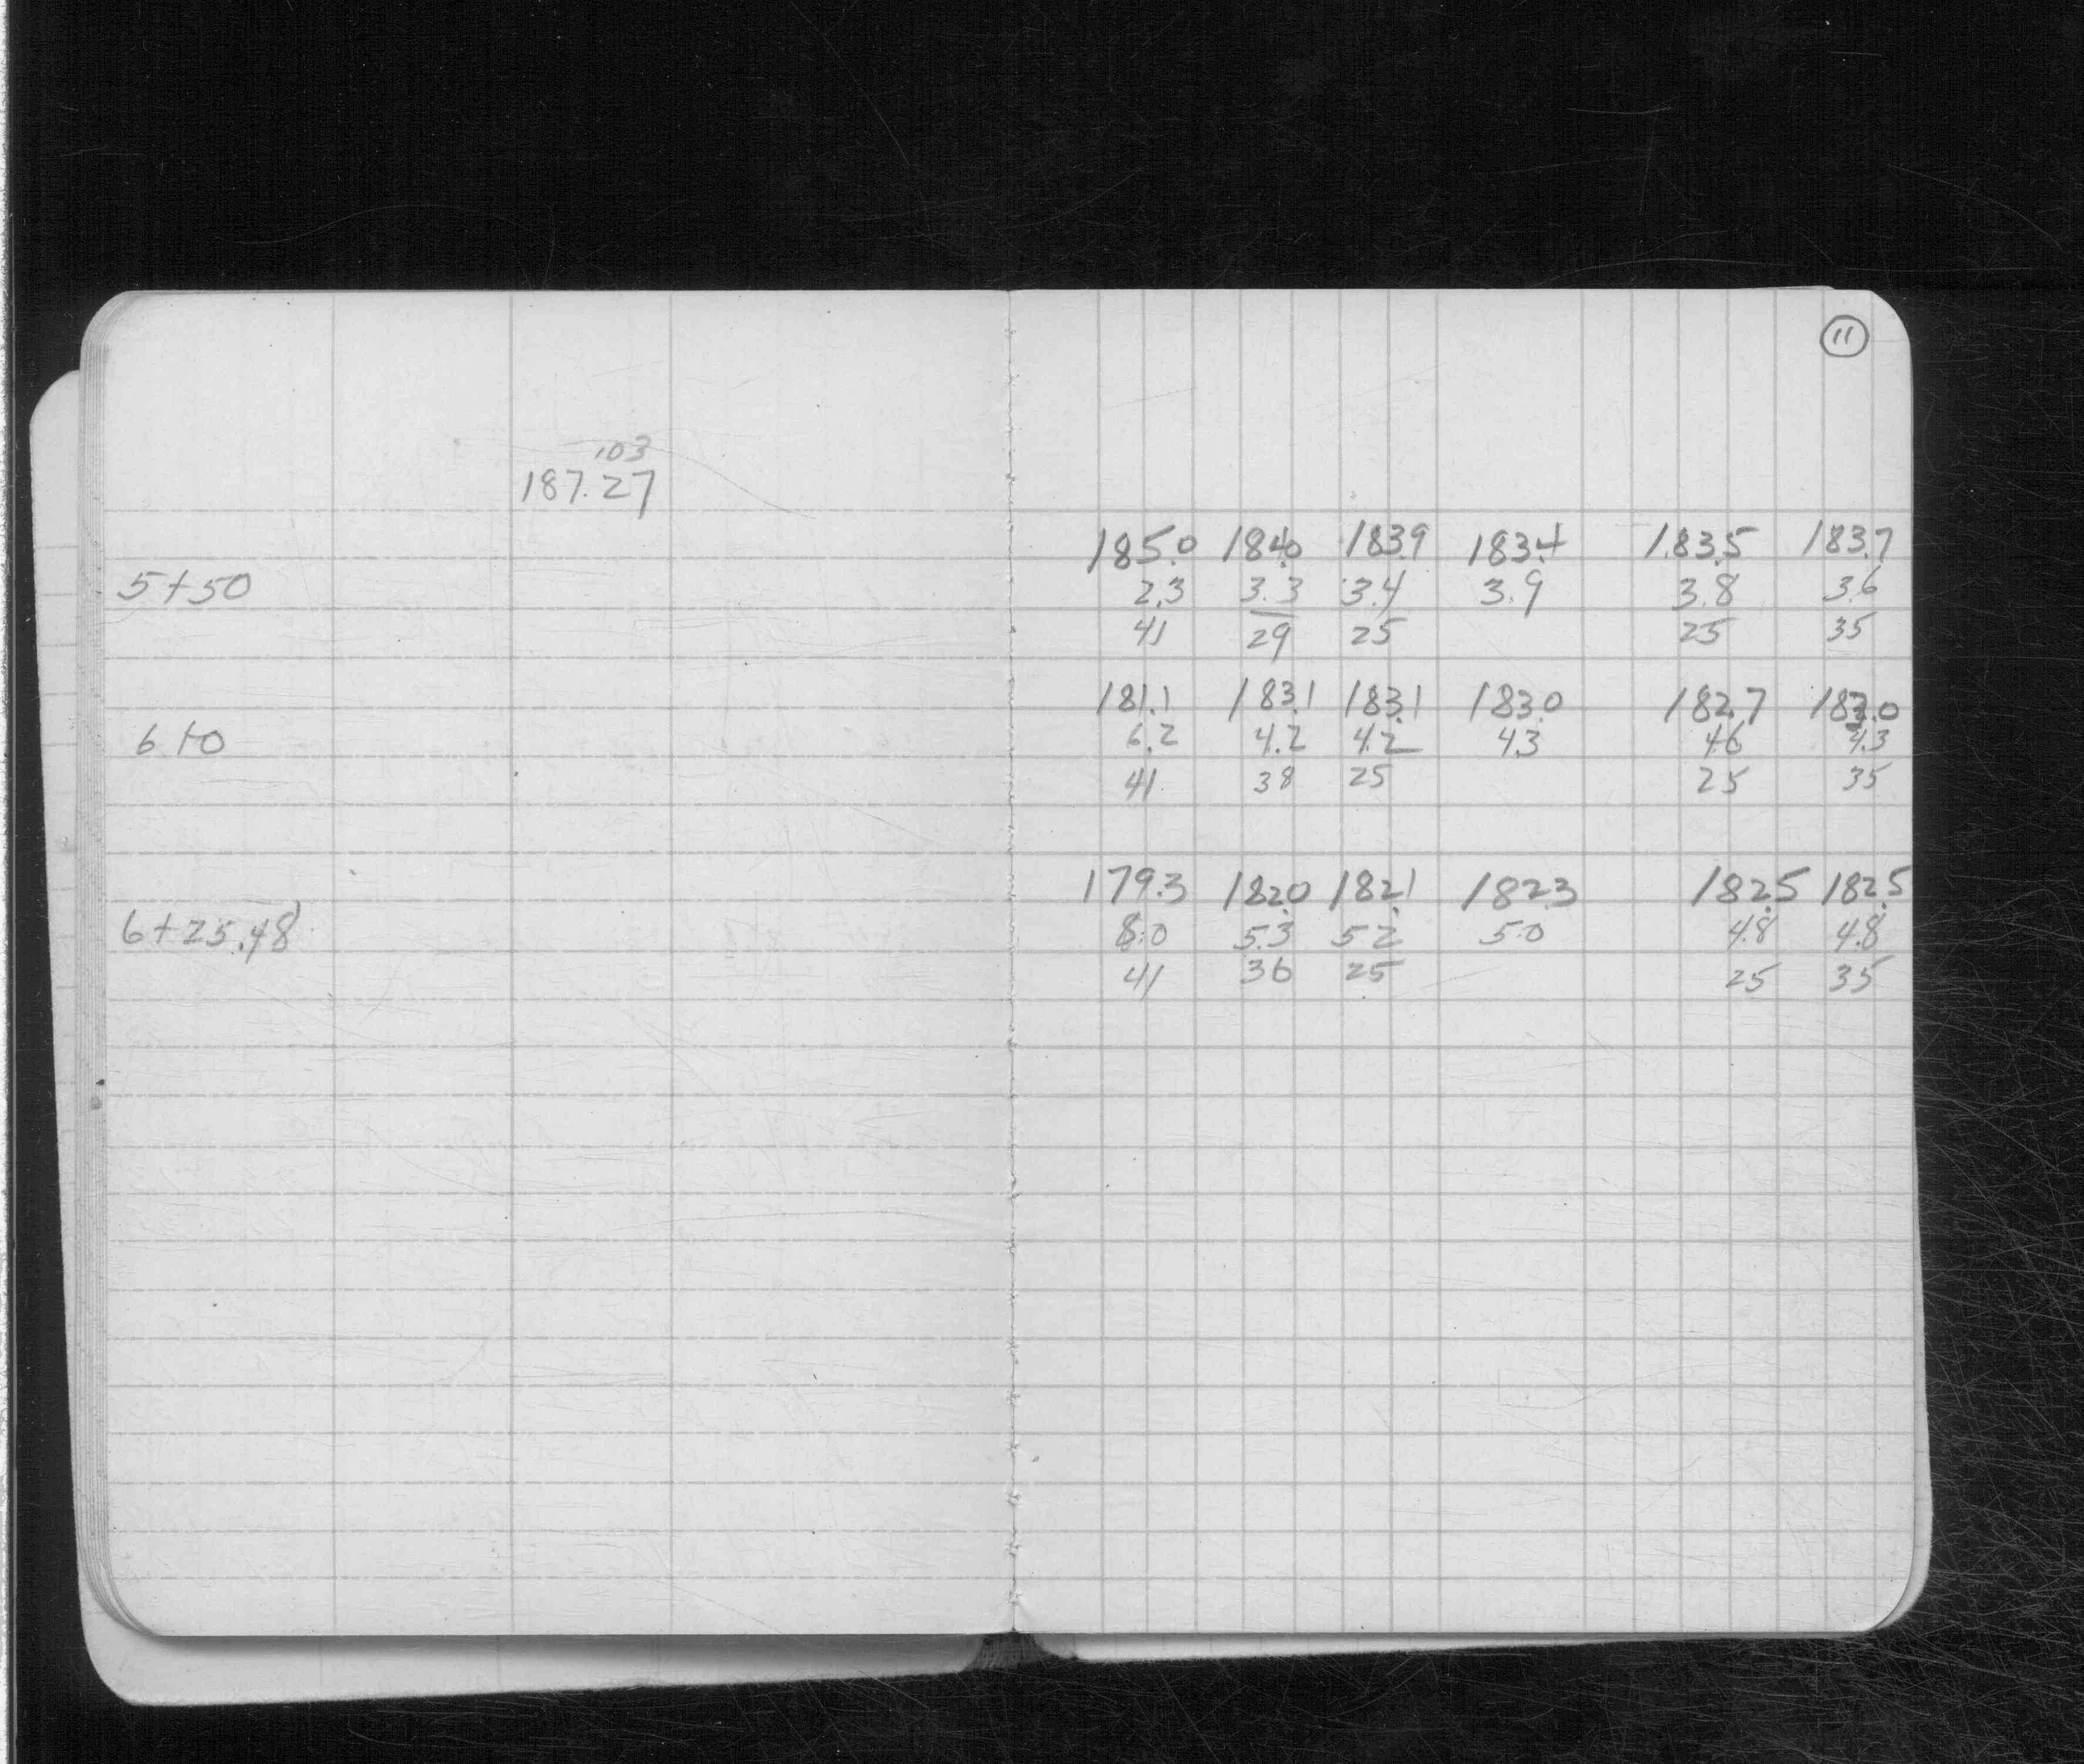 11
103
187.27
185.0 184.0 183.9 183.4 183.5 183.7
5+50 2.3 3.3 3.4 3.9 3.8 3.6
41 29 25 25 35
181.1 183.1 183.1 183.0 182.7 183.0
6+0 6.2 4.2 4.2 4.3 4.6 4.3
41 38 25 25 35
179.3 182.0 182.1 182.3 182.5 182.5
6+25.48 8.0 5.3 5.2 5.0 4.8 4.8
41 36 25 25 35